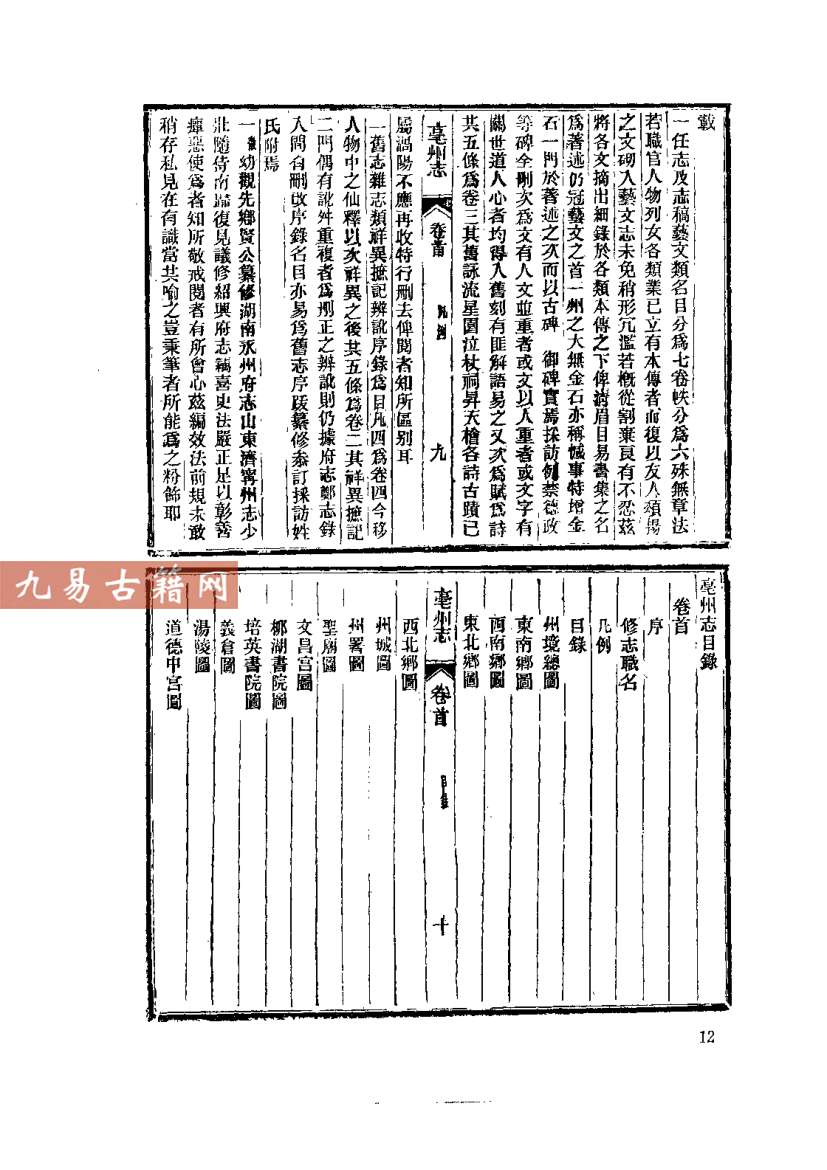 載
一任志及志稿藝文類名目分爲七卷帙分爲六殊無章法
若職官人物列女各類業已立有本傳者而復以友人頌揚
之文砌入藝文志未免稍形冗濫若概從割棄良有不忍茲
將各文摘出細錄於各類本傳之下俾清眉目易書集之名
爲著述仍冠藝文之首一州之大無金石亦稱憾事特增金
石一門於著述之次而以古碑 御碑實焉採訪例禁德政
等碑全刪次爲文有人文並重者或文以人重者或文字有
關世道人心者均得入舊刻有匪解語易之又次爲賦爲詩
共五條爲卷三其舊詠流星園泣杖祠昇天檜各詩古蹟已
亳州志 卷首 凡例 九
屬渦陽不應再收特行刪去俾閱者知所區别耳
一舊志雜志類祥異摭記辨訛序錄爲目凡四爲卷四今移
人物中之仙釋以次祥異之後共五條爲卷二其祥異摭記
二門偶有訛舛重複者爲刪正之辨訛則仍據府志鄭志錄
入間有刪改序錄名目亦易爲舊志序跋纂修叅訂採訪姓
氏附焉
一 幼觀先鄉賢公纂修湖南永州府志山東濟寧州志少
壯隨侍南歸復見議修紹興府志竊喜史法嚴正足以彰善
癉惡使爲者知所敬戒閱者有所會心茲編效法前規未敢
稍存私見在有識當共喻之豈秉筆者所能爲之粉飾耶
亳州志目錄
卷首
序
修志職名
凡例
目錄
州境總圖
東南鄉圖
西南鄉圖
東北鄉圖
亳州志 卷首 目錄 十
西北鄉圖
州城圖
州署圖
聖廟圖
文昌宮圖
柳湖書院圖
培英書院圖
義倉圖
湯陵圖
道德中宮圖
九易古籍网
12